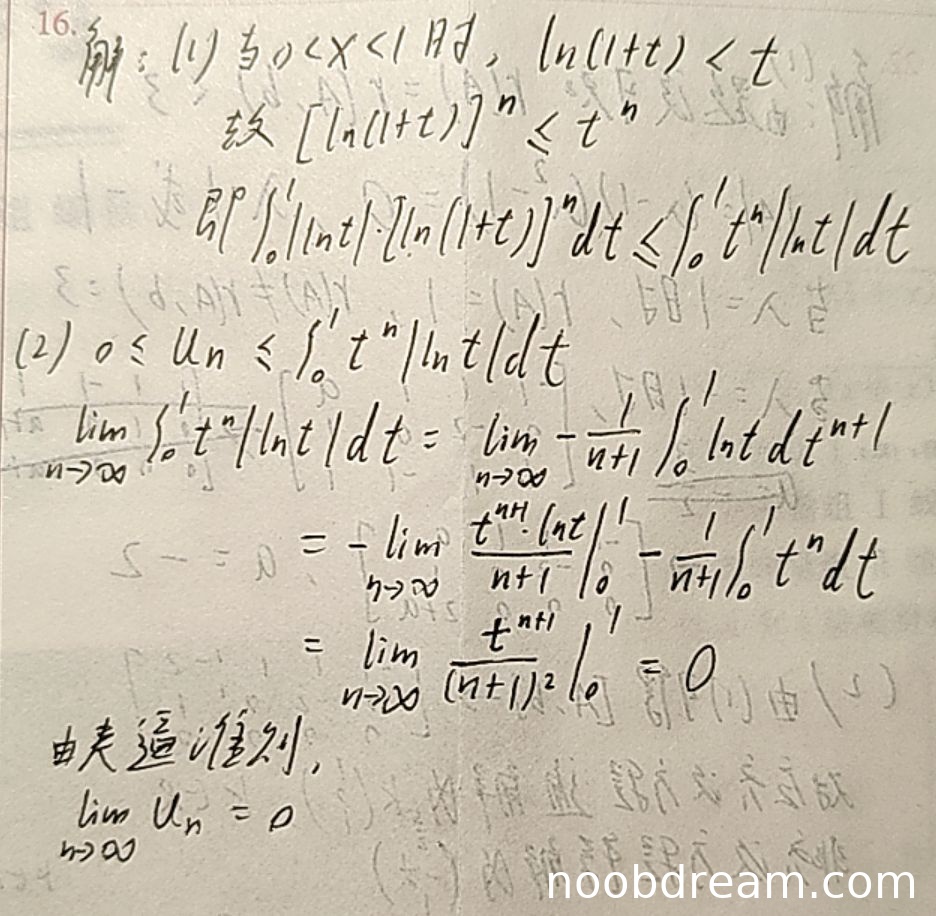 16.
解：(1) 当 0<x<1 时，ln(1+t) < t
故 [ln(1+t)]^n ≤ t^n
即 ∫₀¹|ln t|·[ln(1+t)]^n dt ≤ ∫₀¹ t^n|ln t|dt
(2) 0 ≤ u_n ≤ ∫₀¹ t^n|ln t|dt
lim_{n→∞} ∫₀¹ t^n|ln t|dt = lim_{n→∞} -1/(n+1) ∫₀¹ ln t d t^{n+1}
= -lim_{n→∞} (t^{n+1}·ln t)/(n+1)|₀¹ - 1/(n+1) ∫₀¹ t^n dt
= lim_{n→∞} t^{n+1}/(n+1)²|₀¹ = 0
由夹逼准则，
lim_{n→∞} u_n = 0
noobdream.com